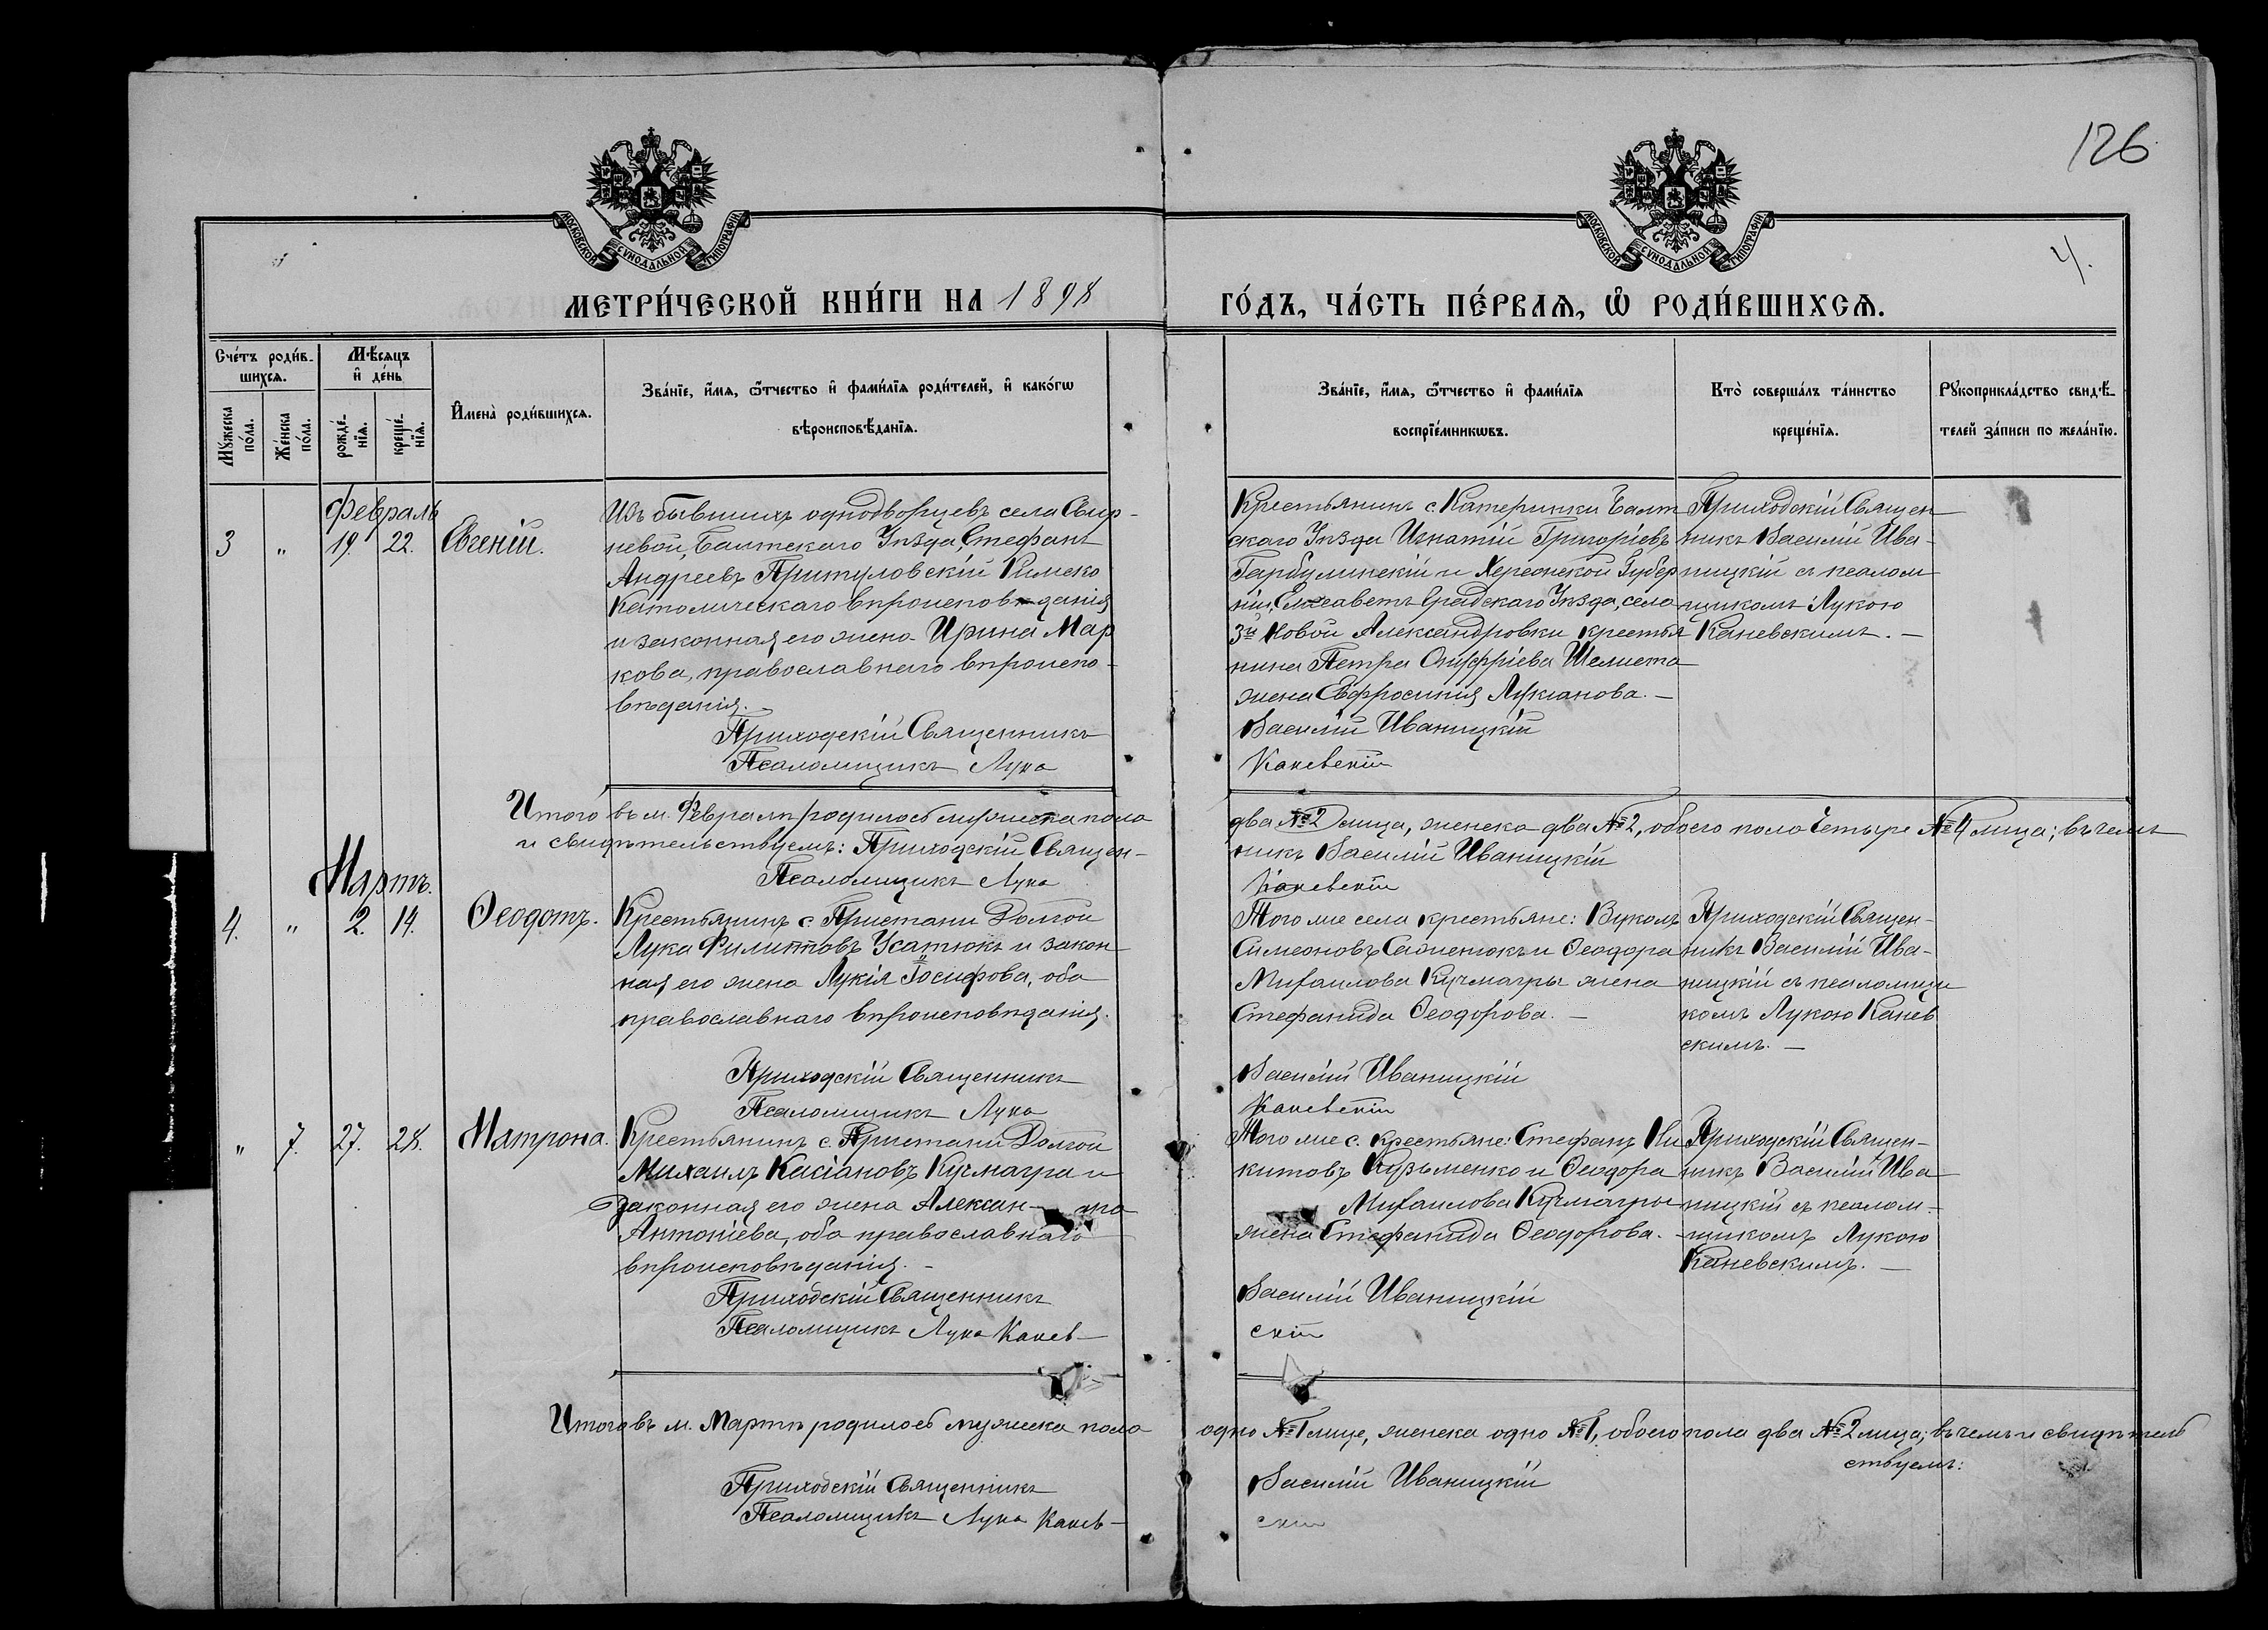 126
4.
МОСКОВСКОЙ СѴНОДАЛЬНОЙ ТИПОГРАФІИ
МОСКОВСКОЙ СѴНОДАЛЬНОЙ ТИПОГРАФІИ
МЕТРИ́ЧЕСКОЙ КНИ́ГИ НА 1898
ГО́ДЪ, ЧА́СТЬ ПЕ́РВАѦ, Ѽ РОДИ́ВШИХСѦ.
Сче́тъ роди́в-
шихсѧ.
Мѣ́сѧцъ
и҆ де́нь
Мꙋ́жеска
по́ла.
Же́нска
по́ла.
рожде́-
нїѧ.
креще́-
нїѧ.
И҆мена̀ роди́вшихсѧ.
Зва́нїе, и҆́мѧ, ѻ҆́тчество и҆ фами́лїѧ роди́телей, и҆ како́гѡ
вѣроисповѣ́данїѧ.
Зва́нїе, и҆́мѧ, ѻ҆́тчество и҆ фами́лїѧ
воспрїе́мникѡвъ.
Кто̀ соверша́лъ та́инство
креще́нїѧ.
Рꙋкоприкла́дство свидѣ́-
телей за́писи по жела́нїю.
Февраль
3 " 19. 22. Евгеній.
Изъ бывшихъ однодворцевъ села Свир-
невой, Балтскаго Уѣзда, Стефанъ
Андреевъ Притуловскій Римско
Католическаго вѣроисповѣданія
и законная его жена Ирина Мар
кова, православнаго вѣроиспо-
вѣданія.
Приходскій Священникъ
Псаломщикъ Лука
Крестьянинъ с. Катеринки Балт
скаго Уѣзда Игнатій Григоріевъ
Гарбулинскій и Херсонской Губер
ніи, Елисаветъ Градскаго Уѣзда, села
3й Новой Александровки крестья
нина Петра Онуфріева Шелиста
жена Евфросинія Лукіанова. —
Василій Иваницкій
Каневскій
Приходскій Священ
никъ Василій Ива-
ницкій съ псалом
щикомъ Лукою
Каневскимъ. —
Итого въ м. Февралѣ родилось мужеска пола два №2 лица, женска два №2, обоего пола четыре №4 лица; въ чемъ
и свидѣтельствуемъ: Приходскій Священ-никъ Василій Иваницкій
Псаломщикъ Лука Каневскій
Мартъ.
4. " 2. 14. Ѳеодотъ.
Крестьянинъ с. Пристани Долгой
Лука Филипповъ Усатюкъ и закон
ная его жена Лукія Іосифова, оба
православнаго вѣроисповѣданія.
Приходскій Священникъ
Псаломщикъ Лука
Того же села крестьяне: Вуколъ
Симеоновъ и Ѳеодора
Михаилова Кучмагры жена
Стефанида Ѳеодорова. —
Василій Иваницкій
Каневскій
Приходскій Священ-
никъ Василій Ива-
ницкій съ псаломщи
комъ Лукою Канев
скимъ. —
" 7. 27. 28. Матрона.
Крестьянинъ с. Пристани Долгой
Михаилъ Касіановъ Кучмагра и
законная его жена
Антоніева, оба православнаго
вѣроисповѣданія. -
Приходскій Священникъ
Псаломщикъ Лука Канев-
Того же с. крестьяне: Стефанъ Ни
китовъ Кузьменко и Ѳеодора
Михаилова Кучмагры
жена Стефанида Ѳеодорова. -
Василій Иваницкій
скій
Приходскій Священ-
никъ Василій Ива
ницкій съ псалом-
щикомъ Лукою
Каневскимъ. —
Итого въ м. Мартѣ родилось мужеска пола одно №1 лице, женска одно №1, обоего пола два №2 лица; въ чемъ и свидѣтель
ствуемъ:
Приходскій Священникъ Василій Иваницкій
Псаломщикъ Лука Канев-скій